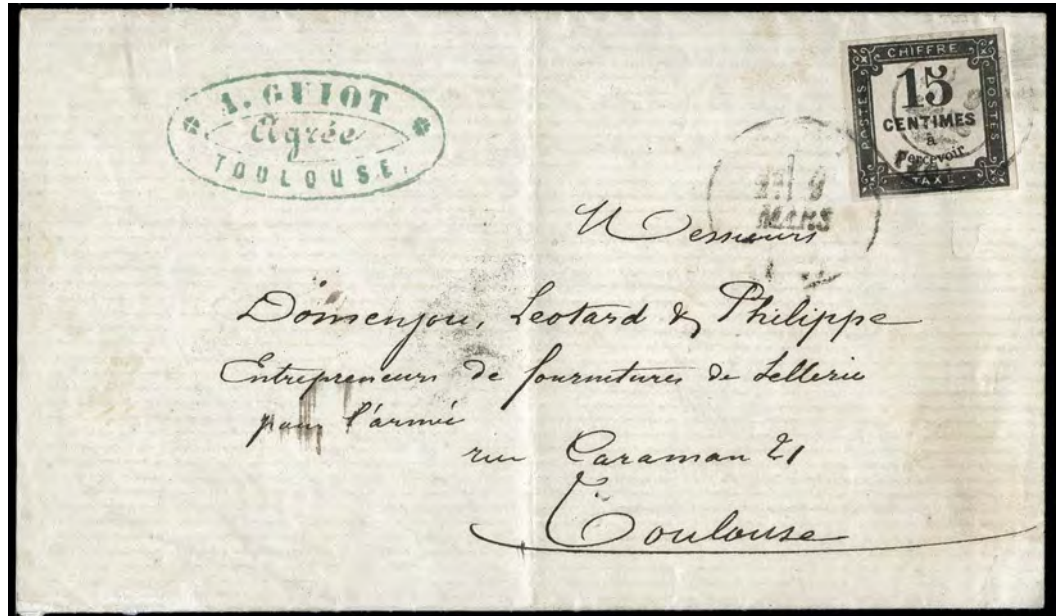 A. GUIOT
Agréé
TOULOUSE.
CHIFFRE
POSTES
15
CENTIMES
à
percevoir
POSTES
TAXE
9
MARS
Messieurs
Domenjou, Leotard & Philippe
Entrepreneurs de fournitures de Sellerie
pour l'armée
rue Caraman 21
Toulouse